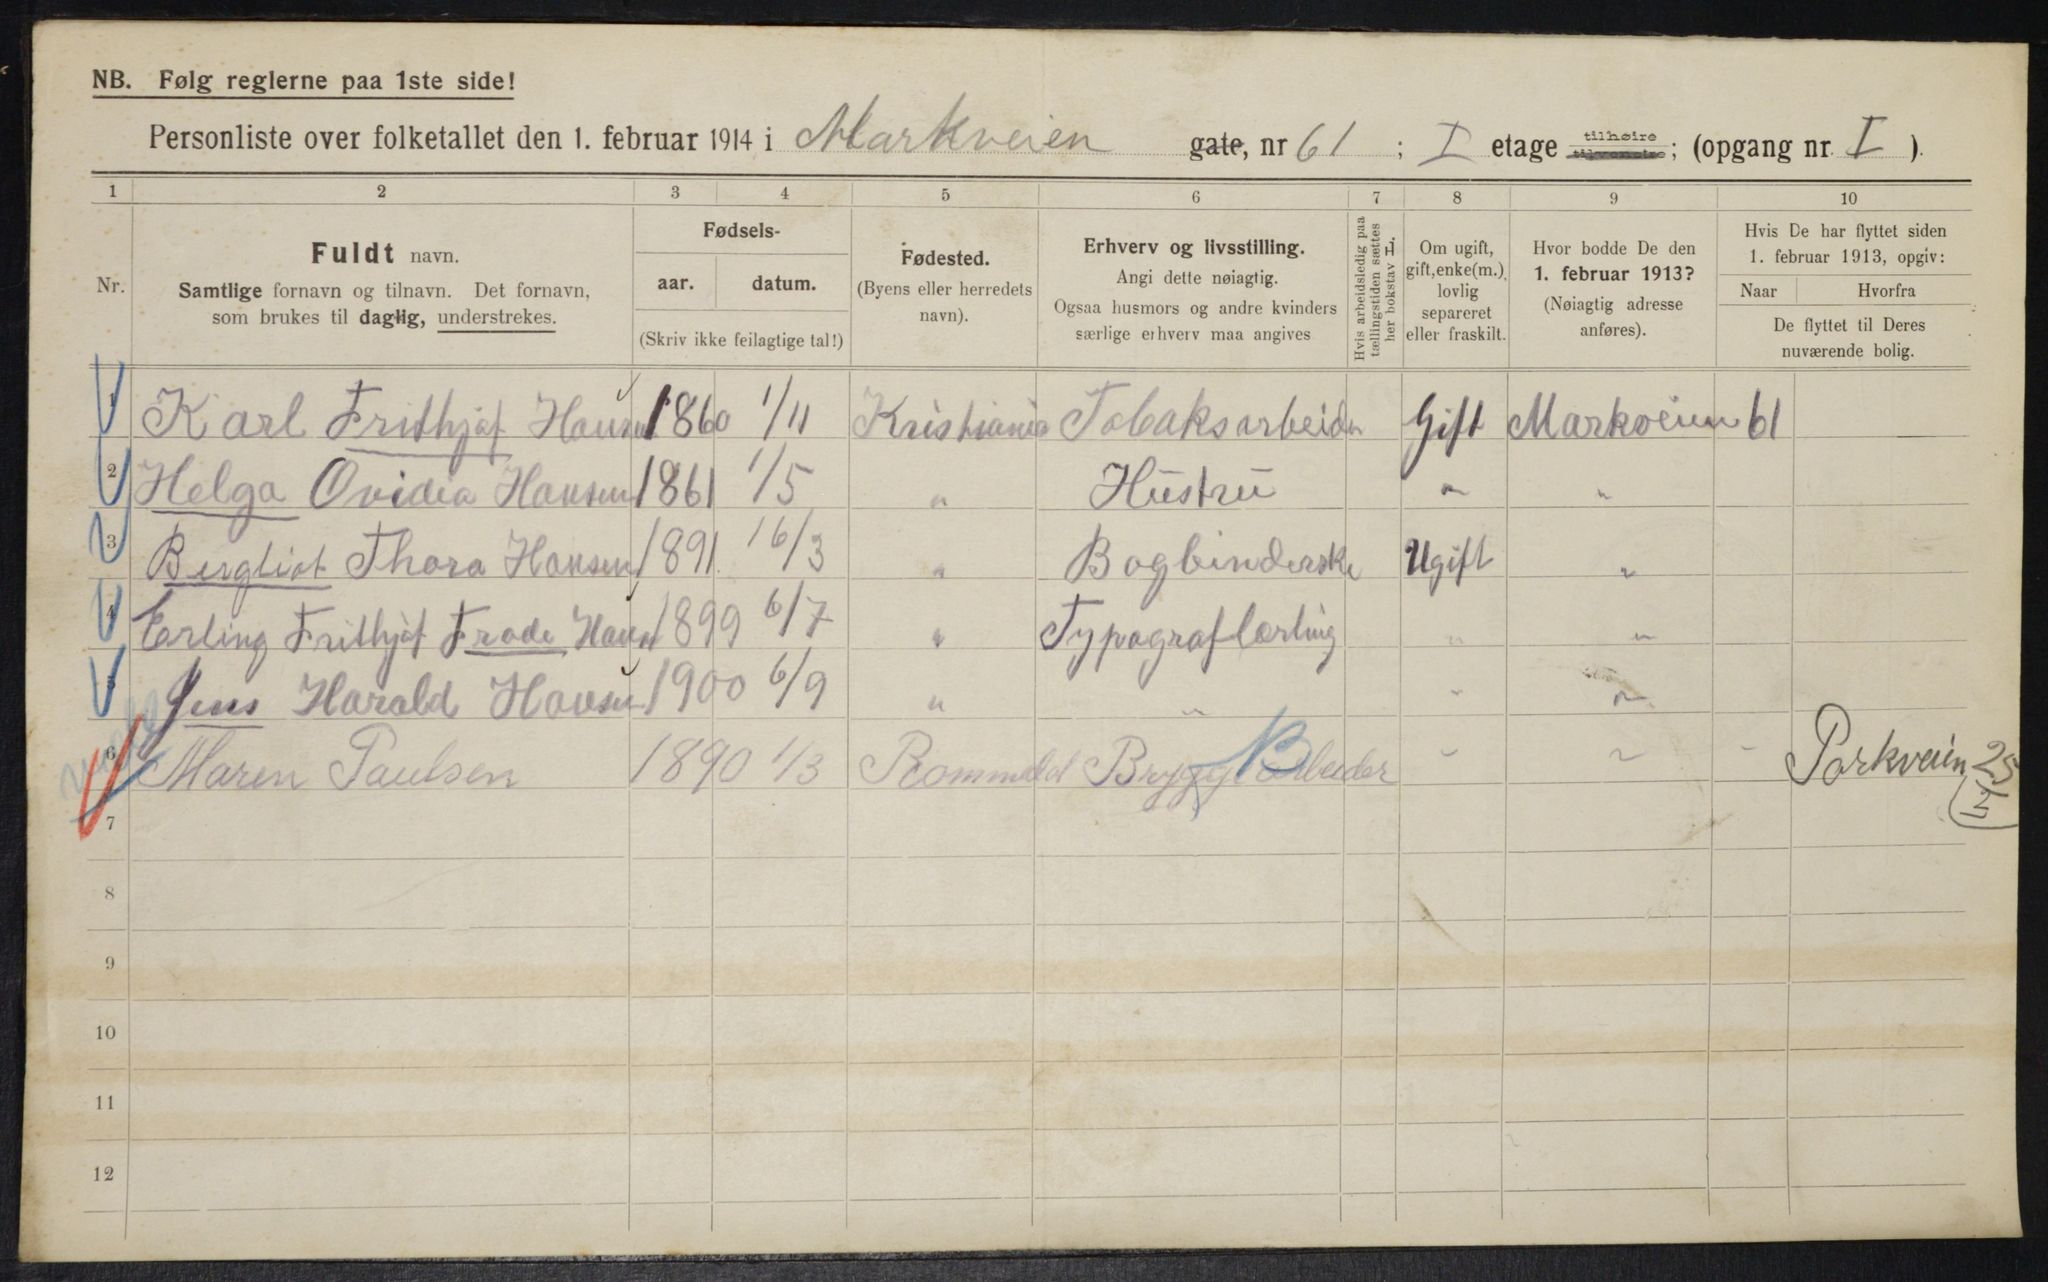 NB. Følg reglerne paa 1ste side!
Personliste over folketallet den 1. februar 1914 i Markveien gate, nr 61 ; I etage tilhøire tilvenstre; (opgang nr. I ).
1 2 3 4 5 6 7 8 9 10
Nr.
Fuldt navn.
Samtlige fornavn og tilnavn. Det fornavn,
som brukes til daglig, understrekes.
Fødsels-
aar. datum.
(Skriv ikke feilagtige tal!)
Fødested.
(Byens eller herredets
navn).
Erhverv og livsstilling.
Angi dette nøiagtig.
Ogsaa husmors og andre kvinders
særlige erhverv maa angives
Hvis arbeidsledig paa
tællingstiden sættes
her bokstav L.
Om ugift,
gift, enke(m.),
lovlig
separeret
eller fraskilt.
Hvor bodde De den
1. februar 1913?
(Nøiagtig adresse
anføres).
Hvis De har flyttet siden
1. februar 1913, opgiv:
Naar Hvorfra
De flyttet til Deres
nuværende bolig.
1 Karl Frithjof Hansen 1860 1/11 Kristiania Tobaksarbeider Gift Markveien 61
2 Helga Ovidea Hansen 1861 1/5 " Hustru " "
3 Bergliot Thora Hansen 1891 16/3 " Bogbinderske Ugift "
4 Erling Frithjof Frode Hansen 1899 6/7 " Typograflærling " "
5 Jens Harald Hansen 1900 6/9 " " " "
6 Maren Paulsen 1890 1/3 Bryggi Arbeider " " " Parkveien 25
7
8
9
10
11
12